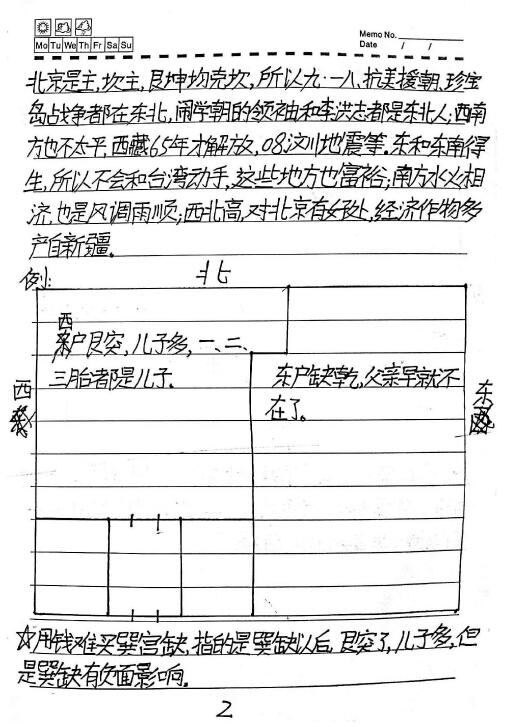 Memo No.
Mo Tu We Th Fr Sa Su
Date / /
北京是主,坎主,艮坤均克坎,所以九·一八、抗美援朝、珍宝
岛战争都在东北,闹学朝的领袖和李洪志都是东北人;西南
方也不太平,西藏65年才解放,08汶川地震等。东和东南得
生,所以不会和台湾动手,这些地方也富裕;南方水火相
济,也是风调雨顺;西北高,对北京有好处,经济作物多
产自新疆。
例:
北
西
户艮突,儿子多,一、二、
三胎都是儿子。
东户缺乾,父亲早就不
在了。
西
东
☆用钱难买巽宫缺,指的是巽缺以后,艮突了,儿子多,但
是巽缺有负面影响。
2